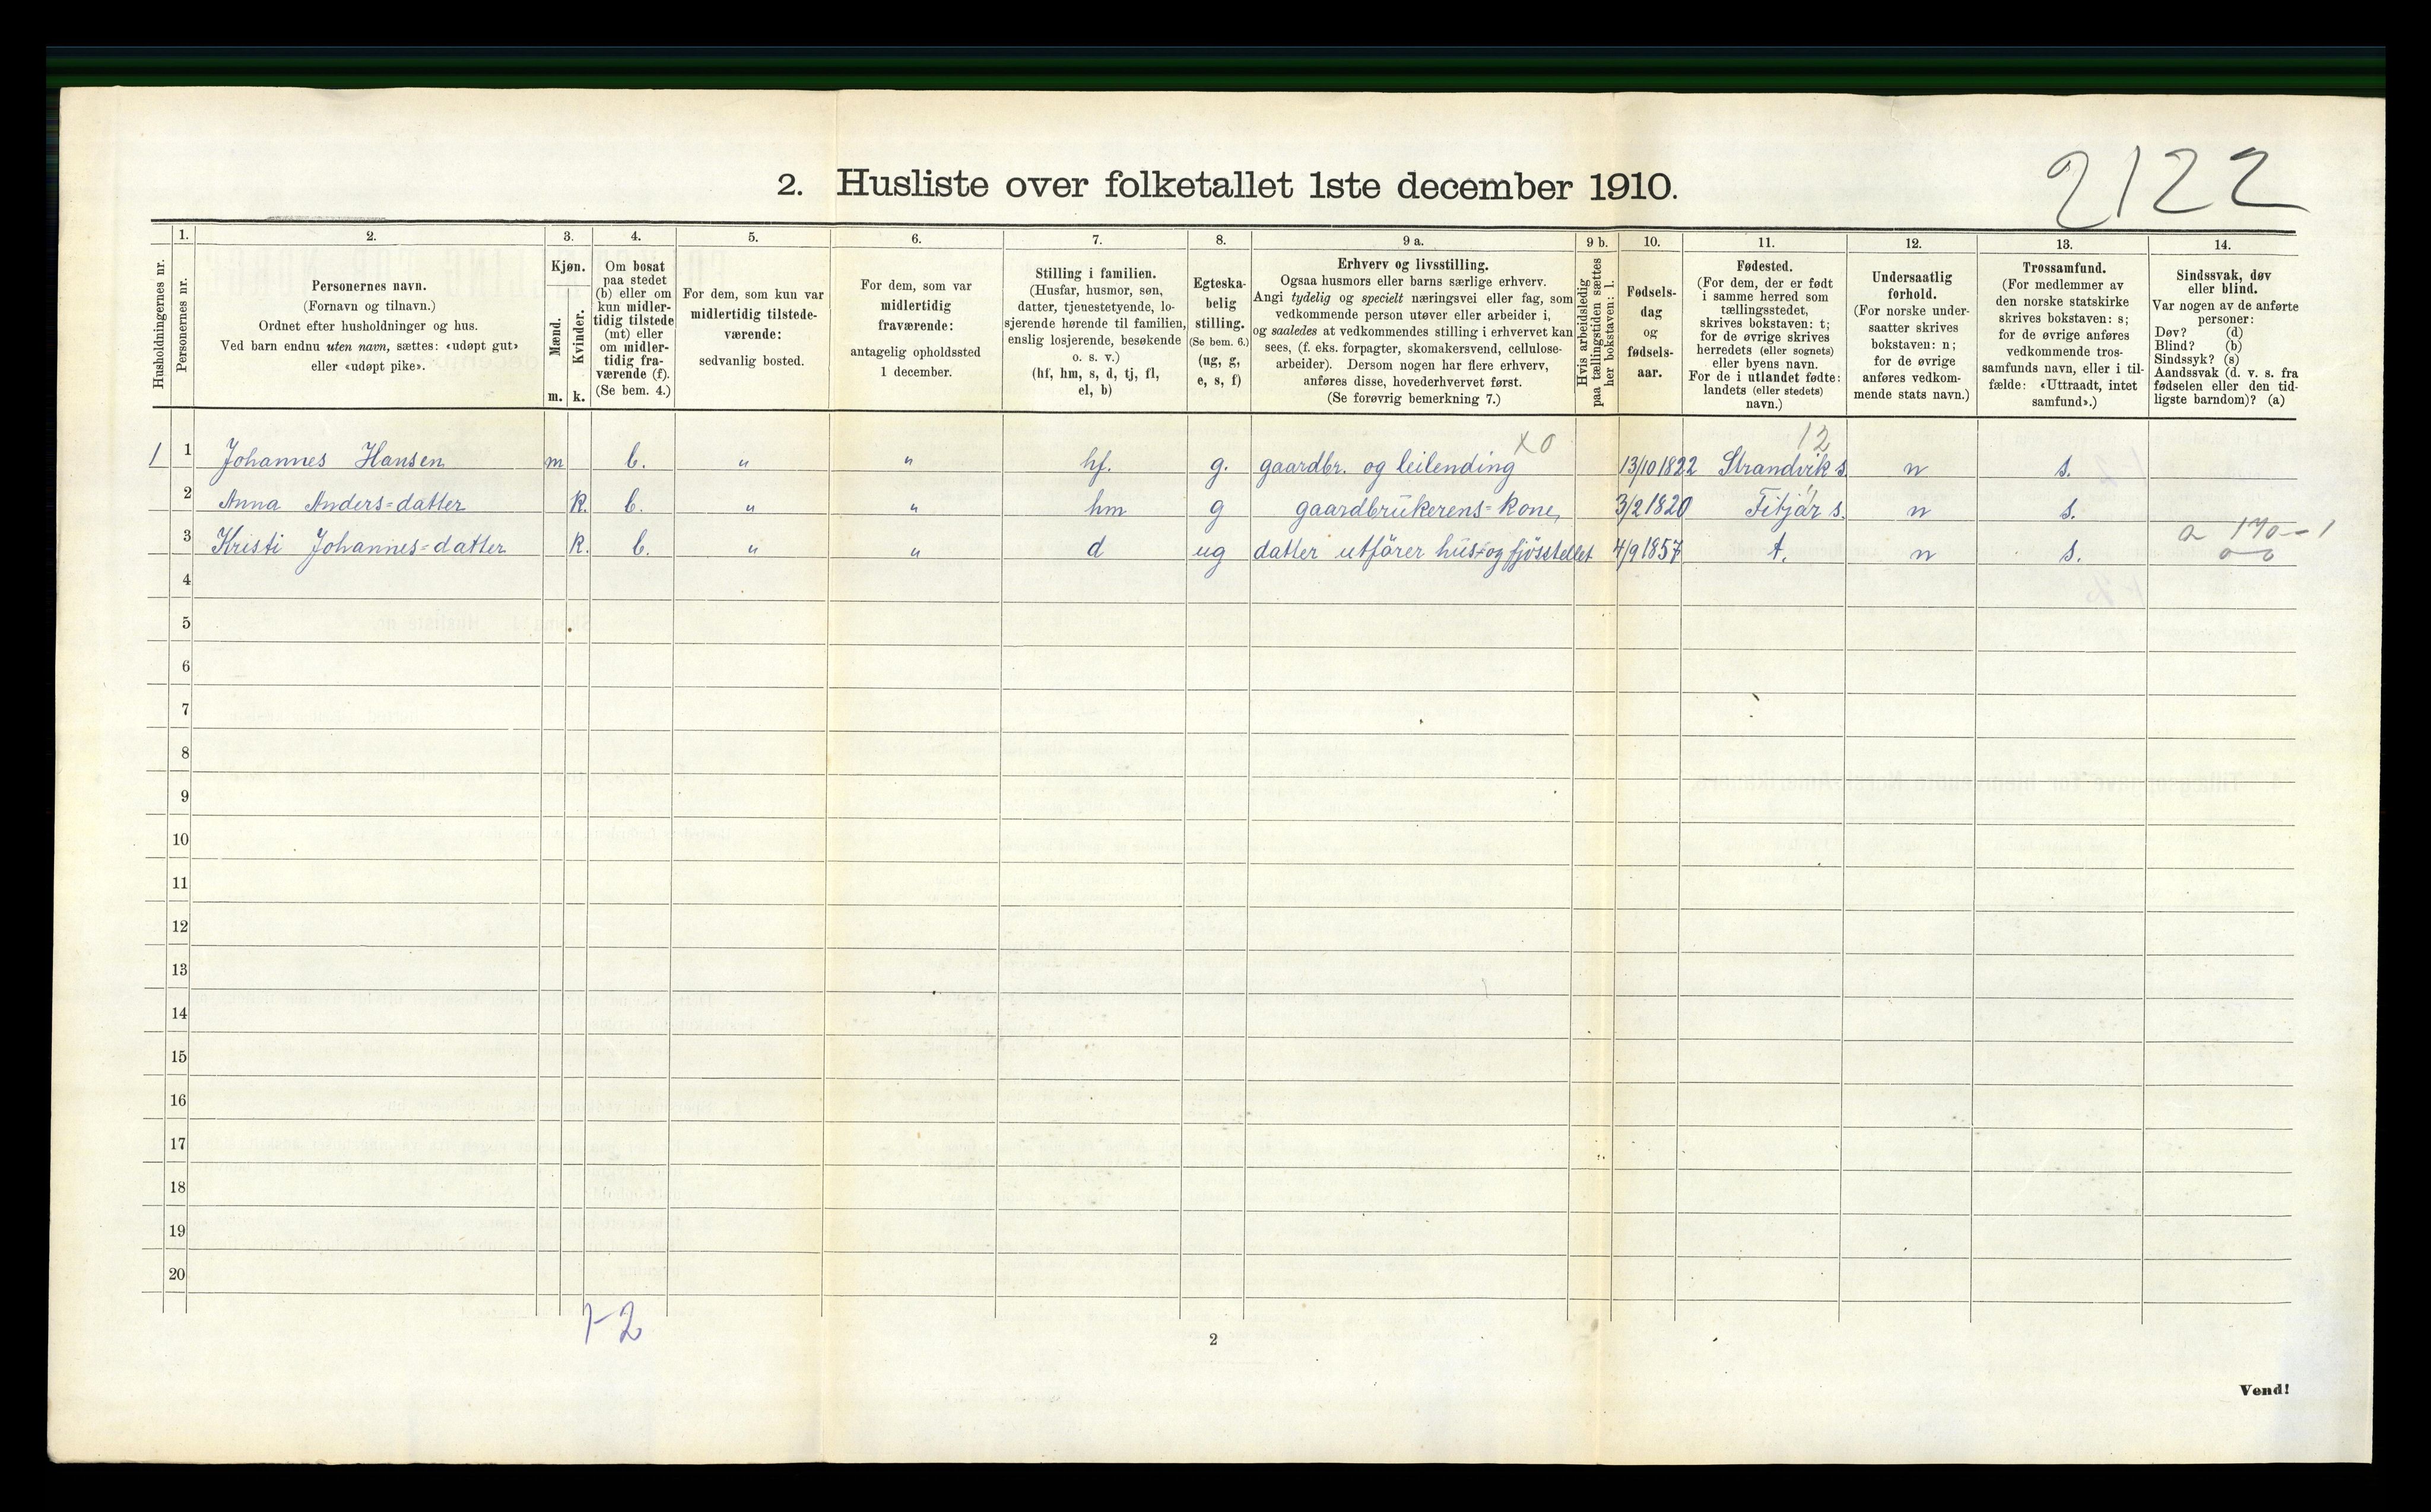 2122
2. Husliste over folketallet 1ste december 1910.
Husholdningernes nr.
1.
Personernes nr.
2.
Personernes navn.
(Fornavn og tilnavn.)
Ordnet efter husholdninger og hus.
Ved barn endnu uten navn, sættes: «udøpt gut»
eller «udøpt pike».
3.
Kjøn.
Mænd.
Kvinder.
m. k.
4.
Om bosat
paa stedet
(b) eller om
kun midler-
tidig tilstede
(mt) eller
om midler-
tidig fra-
værende (f).
(Se bem. 4.)
5.
For dem, som kun var
midlertidig tilstede-
værende:
sedvanlig bosted.
6.
For dem, som var
midlertidig
fraværende:
antagelig opholdssted
1 december.
7.
Stilling i familien.
(Husfar, husmor, søn,
datter, tjenestetyende, lo-
sjerende hørende til familien,
enslig losjerende, besøkende
o. s. v.)
(hf, hm, s, d, tj, fl,
el, b)
8.
Egteska-
belig
stilling.
(Se bem. 6.)
(ug, g,
e, s, f)
9 a.
Erhverv og livsstilling.
Ogsaa husmors eller barns særlige erhverv.
Angi tydelig og specielt næringsvei eller fag, som
vedkommende person utøver eller arbeider i,
og saaledes at vedkommendes stilling i erhvervet kan
sees, (f. eks. forpagter, skomakersvend, cellulose-
arbeider). Dersom nogen har flere erhverv,
anføres disse, hovederhvervet først.
(Se forøvrig bemerkning 7.)
9 b.
Hvis arbeidsledig
paa tællingstiden sættes
her bokstaven: l.
10.
Fødsels-
dag
og
fødsels-
aar.
11.
Fødested.
(For dem, der er født
i samme herred som
tællingsstedet,
skrives bokstaven: t;
for de øvrige skrives
herredets (eller sognets)
eller byens navn.
For de i utlandet fødte:
landets (eller stedets)
navn.)
12.
Undersaatlig
forhold.
(For norske under-
saatter skrives
bokstaven: n;
for de øvrige
anføres vedkom-
mende stats navn.)
13.
Trossamfund.
(For medlemmer av
den norske statskirke
skrives bokstaven: s;
for de øvrige anføres
vedkommende tros-
samfunds navn, eller i til-
fælde: «Uttraadt, intet
samfund».)
14.
Sindssvak, døv
eller blind.
Var nogen av de anførte
personer:
Døv? (d)
Blind? (b)
Sindssyk? (s)
Aandssvak (d. v. s. fra
fødselen eller den tid-
ligste barndom)? (a)
x0 12
1 1 Johannes Hansen m b. " " hf. g. gaardbr. og leilending 13/10 1822 Strandvik s. n s.
2 Anna Anders=datter k. b. " " hm g gaardbrukerens=kone, 3/2 1820 Fitjar s. n s.
3 Kristi Johannes=datter k. b. " " d ug datter utfører hus=og fjøsstellet 4/9 1857 t. n s.
4
5
6
7
8
9
10
11
12
13
14
15
16
17
18
19
20
1-2
2
Vend!